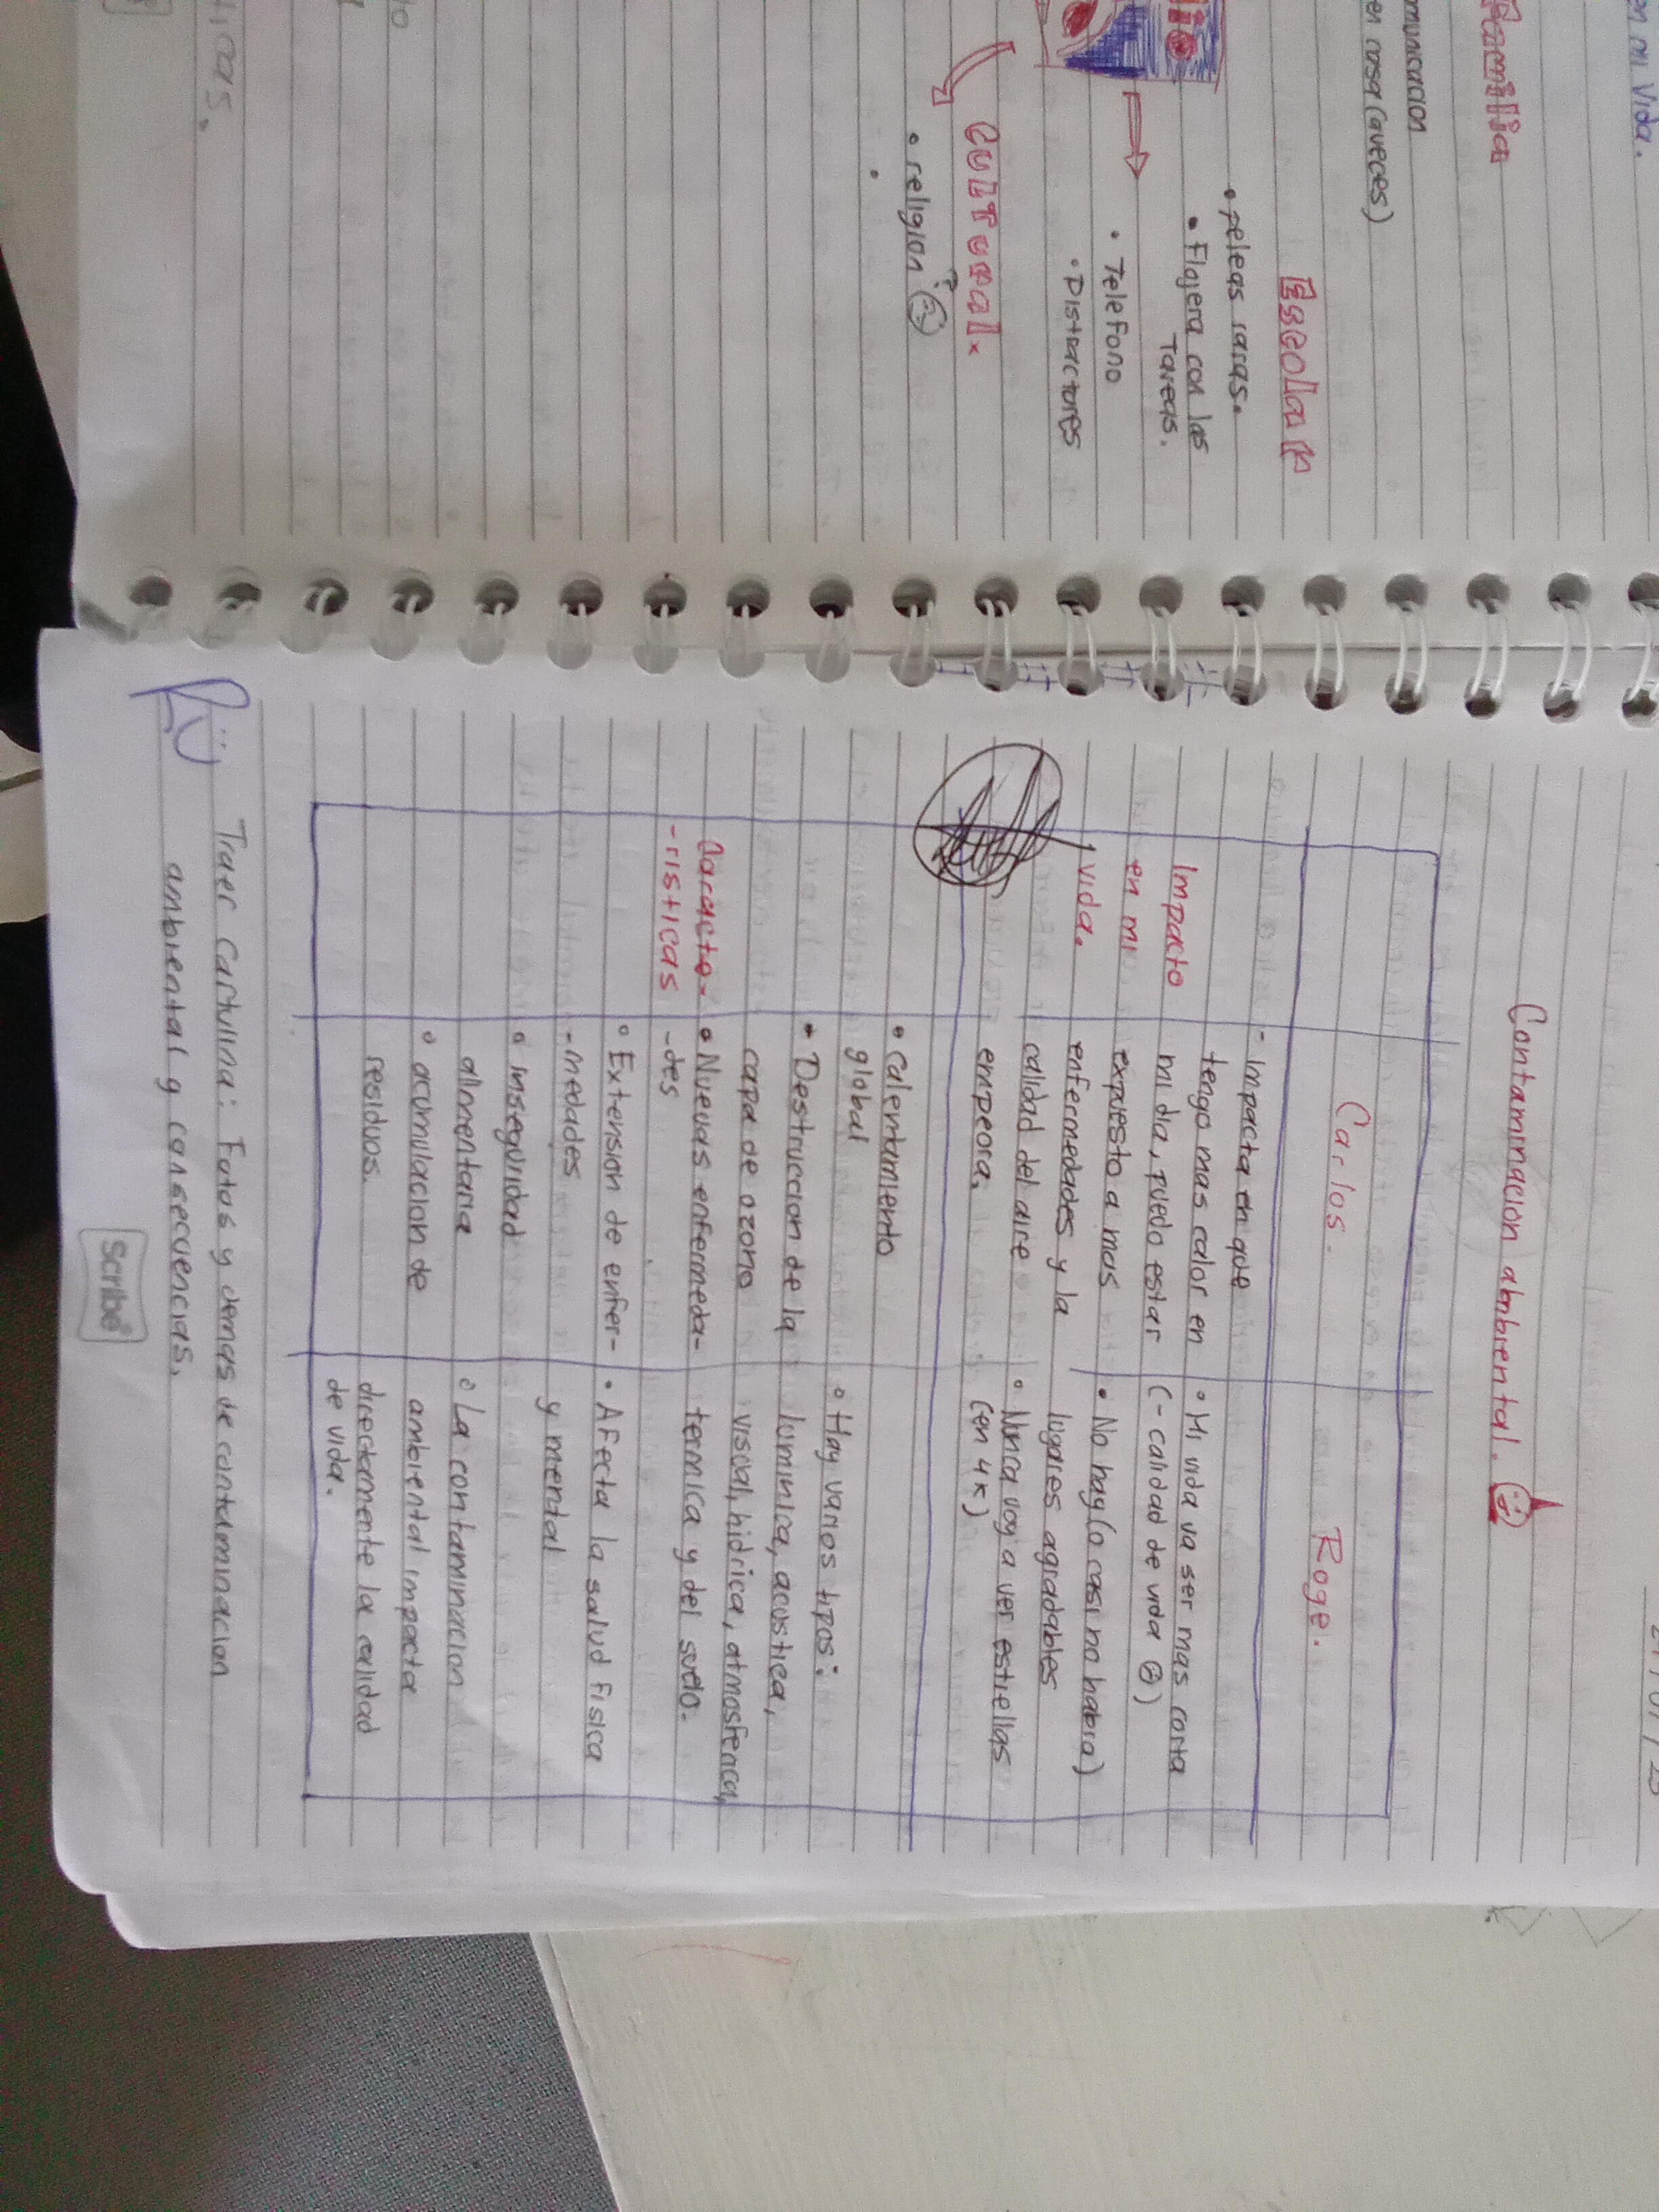 en mi vida.
Familia
en casa (aveces)
Escolar
• peleas raras.
• Flojera con las
Tareas.
• Telefono
• Distractores
Cultural.
• religion ?
icas.
Contaminacion ambiental.
Carlos.
Roge.
Impacto
en mi
vida.
- Impacta en que
tengo mas calor en
mi dia, puedo estar
expuesto a mas
enfermedades y la
calidad del aire
empeora.
• Mi vida va ser mas corta
(- calidad de vida)
• No hay (o casi no habra)
lugares agradables
• Nunca voy a ver estrellas
(en 4K)
Caracte-
-risticas
• calentamiento
global
• Destruccion de la
capa de ozono
• Nuevas enfermeda-
-des
• Extension de enfer-
-medades
• inseguridad
alimentaria
• acumulacion de
residuos.
• Hay varios tipos:
luminica, acustica,
visual, hidrica, atmosferica,
termica y del suelo.
• Afecta la salud fisica
y mental
• La contaminacion
ambiental impacta
directamente la calidad
de vida.
Traer Cartulina: Fotos y demas de contaminacion
ambiental y consecuencias.
Scribe